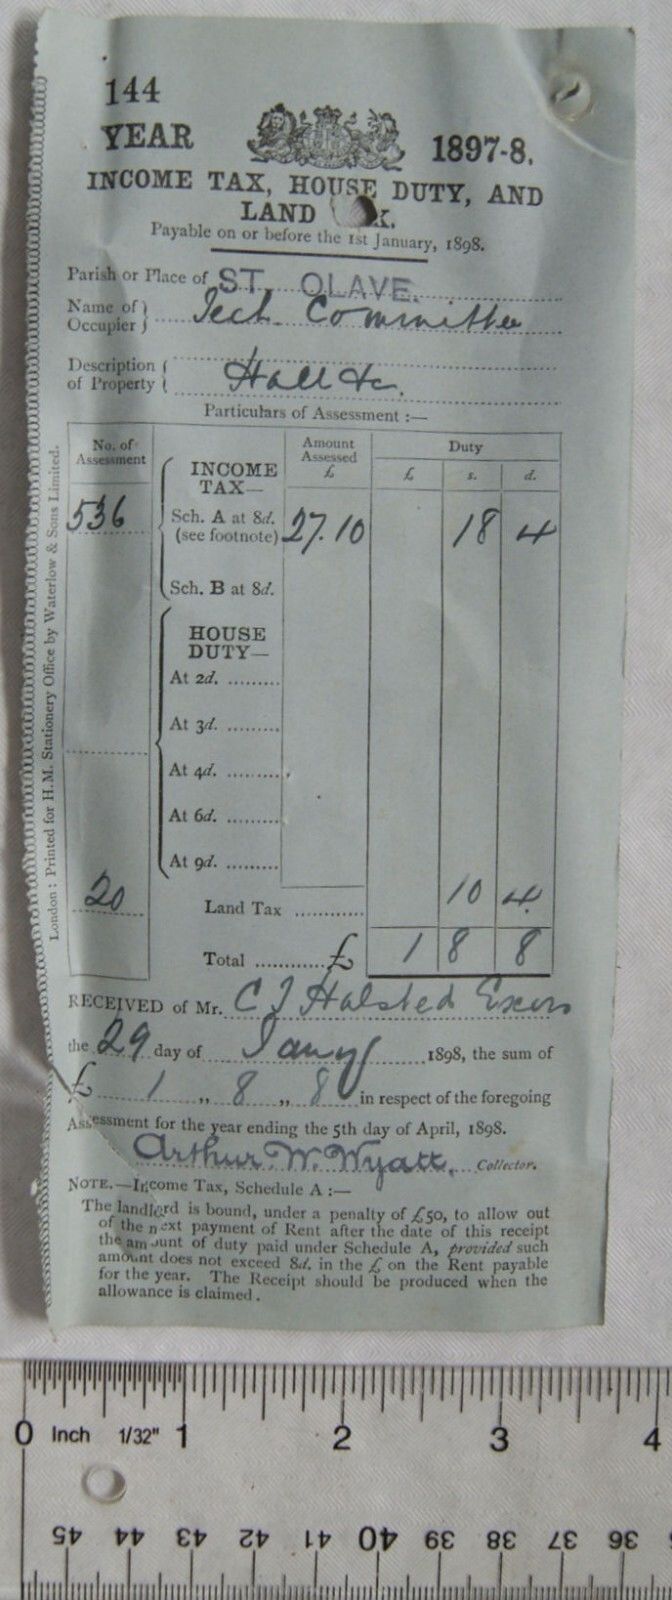 144
YEAR 1897-8.
INCOME TAX, HOUSE DUTY, AND
LAND
Payable on or before the 1st January, 1898.
Parish or Place of ST. OLAVE.
Name of Occupier Tech. Committee
Description of Property Hall &c.
Particulars of Assessment :—
No. of Assessment Amount Assessed £ Duty £ s. d.
INCOME
TAX—
536 Sch. A at 8d. (see footnote) 27.10 18 4
Sch. B at 8d.
HOUSE
DUTY—
At 2d. .........
At 3d. .........
At 4d. .........
At 6d. .........
At 9d. .........
20 Land Tax ............ 10 4.
Total ............£ 1 8 8
RECEIVED of Mr. C J Halsted Exors
the 29 day of Jany 1898, the sum of
£ 1 „ 8 „ 8 in respect of the foregoing
Assessment for the year ending the 5th day of April, 1898.
Arthur. W. Wyatt. Collector.
NOTE.—Income Tax, Schedule A :—
The landlord is bound, under a penalty of £50, to allow out
of the next payment of Rent after the date of this receipt
the amount of duty paid under Schedule A, provided such
amount does not exceed 8d. in the £ on the Rent payable
for the year. The Receipt should be produced when the
allowance is claimed.
London : Printed for H.M. Stationery Office by Waterlow & Sons Limited.
0 Inch 1/32" 1 2 3 4
45 44 43 42 41 40 39 38 37 36